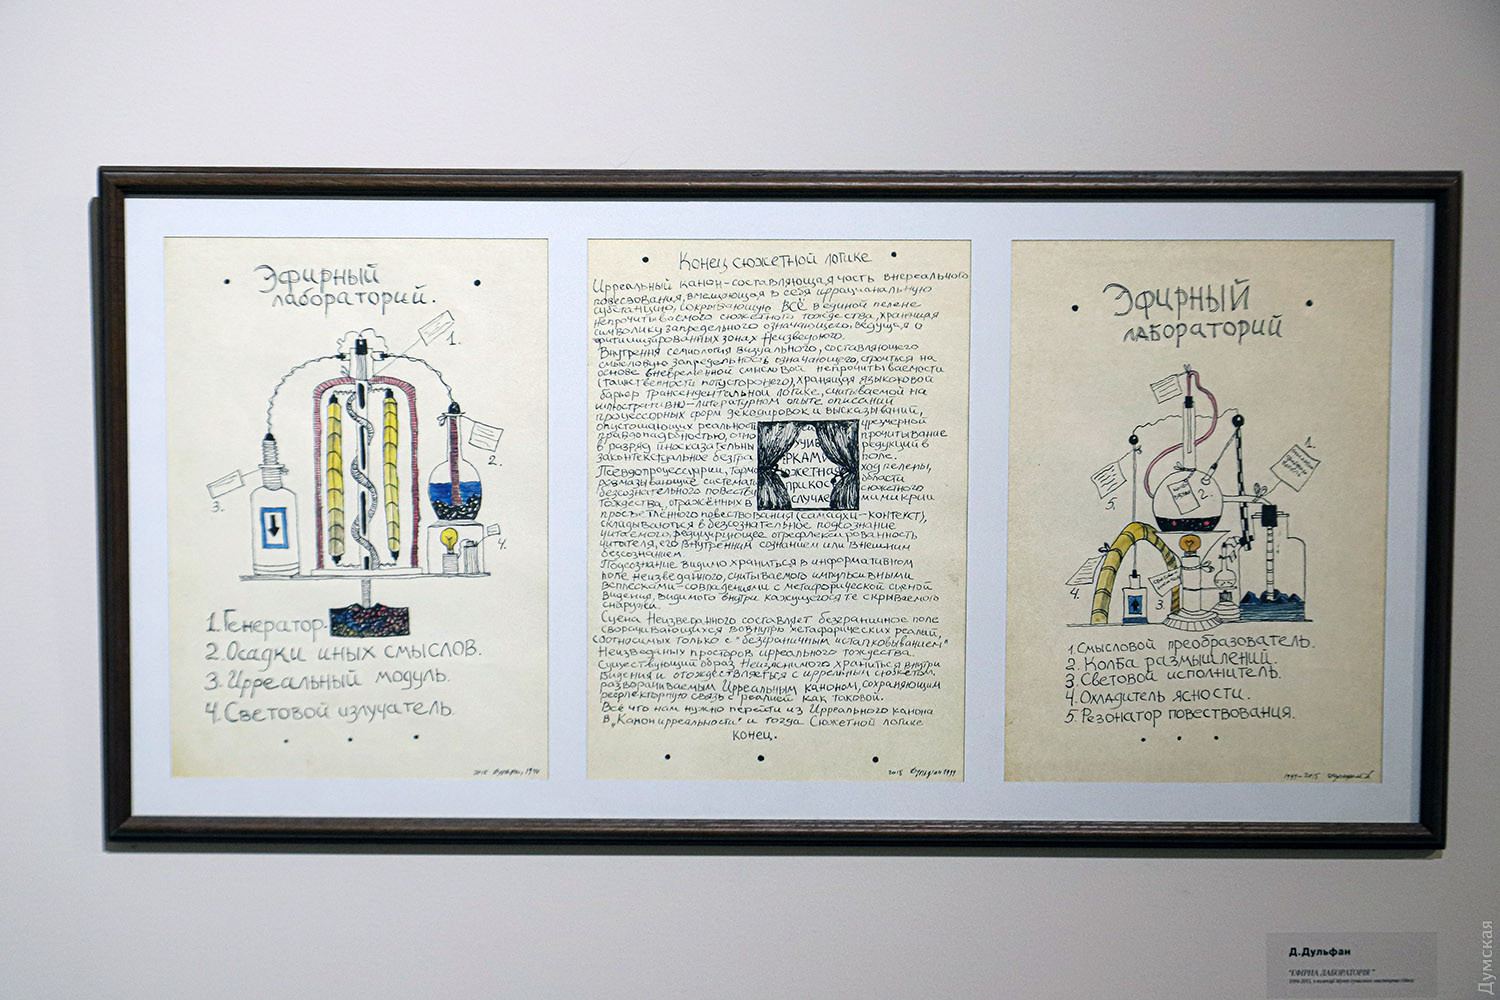 Эфирный
лабораторий.
1.
2.
3.
4.
1. Генератор.
2. Осадки иных смыслов.
3. Ирреальный модуль.
4. Световой излучатель.
Конец сюжетной логике
Ирреальный канон-составляющая часть внереального
повествования, вмещающая в себя иррациональную
субстанцию, сокрывающую ВСЁ в единой пелене
непрочитываемого сюжетного тождества, хранящая
символику запредельного означающего, ведущая о
зонах Неизведоного.
Внутрення семиология визуального, составляющего
смысловую запредельность означающего, строиться на
основе вневременной смысловой непрочитываемости
(таинственности потустороннего), хранящая языоковой
барьер трансцендентальной логике, считываемой на
иллюстративно-литературном опыте описаний
процессорных форм декодировок и высказываний,
опустошающих реальность чрезмерной
правдоподобностью, отно прочитывание
в разряд иносказательны редукций в
законтекстуальное безгра поле.
Псевдопроцессарии, ход пелены,
размазывающие системат области
безсознательного повеству сюжетного
тождества, отражённых в мимикрии
повествования (самадхи-контекст),
складываются в безсознательное подсознание
читаемого, редуцирующее отрефлексированность
читателя, его внутренним сознанием или внешним
безсознанием.
Подсознание видимо храниться в информативном
поле неизведанного, считываемого импульсивными
всплесками-совпадениями с метафорической сценой
видения, видимого внутри кажущегося те скрываемого
снаружи.
Сцена Неизведанного составляет безграничное поле
сворачивающихся вовнутрь метафорических реалий,
соотносимых только с "безграничным истолковыванием,"
Неизведаных просторов ирреального тождества.
Существующий образ Неизъяснимого храниться внутри
Видения и отождествляеться с иррельным сюжетом,
разворачиваемым Ирреальным каноном, сохраняющим
рефлектурную связь с реалией как таковой.
Всё что нам нужно перейти из Ирреального канона
в „Канон ирреальности" и тогда Сюжетной логике
конец.
Эфирный
лабораторий
1.
2.
3.
4.
5.
1. Смысловой преобразователь.
2. Колба размышлений.
3 Световой исполнитель.
4. Охладитель ясности.
5. Резонатор повествования.
2015
1999-2015
Д.Дульфан
"ЕФІРНА ЛАБОРАТОРІЯ"
Думская